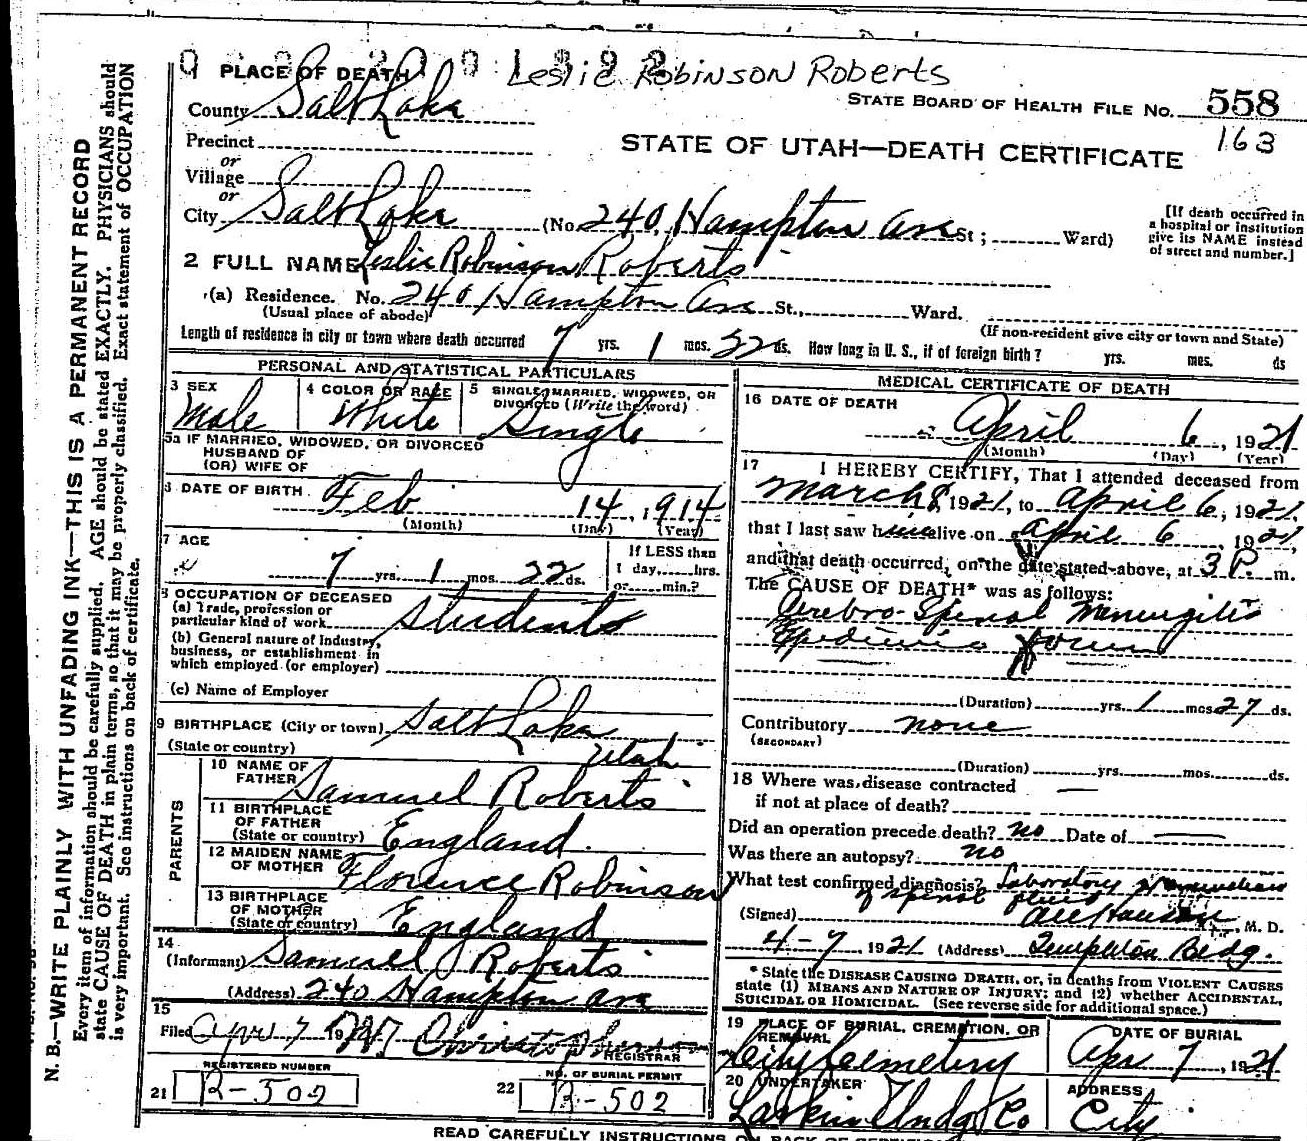 1 PLACE OF DEATH Leslie Robinson Roberts
County Salt Lake
STATE BOARD OF HEALTH FILE NO. 558
163
Precinct
or
Village
or
STATE OF UTAH—DEATH CERTIFICATE
City Salt Lake (No. 240 Hampton Ave St; Ward)
[If death occurred in
a hospital or institution
give its NAME instead
of street and number.]
2 FULL NAME Leslie Robinson Roberts
(a) Residence. No. 240 Hampton Ave St., Ward.
(Usual place of abode) (If non-resident give city or town and State)
Length of residence in city or town where death occurred 7 yrs. 1 mos. 22 ds. How long in U. S., if of foreign birth? yrs. mos. ds
PERSONAL AND STATISTICAL PARTICULARS
3 SEX
Male
4 COLOR OR RACE
White
5 SINGLE, MARRIED, WIDOWED, OR
DIVORCED (Write the word)
Single
5a IF MARRIED, WIDOWED, OR DIVORCED
HUSBAND OF
(OR) WIFE OF
DATE OF BIRTH Feb 14, 1914
(Month) (Day) (Year)
7 AGE
7 yrs. 1 mos. 22 ds.
If LESS than
1 day, hrs.
or min.?
OCCUPATION OF DECEASED
(a) Trade, profession or
particular kind of work Student
(b) General nature of Industry,
business, or establishment in
which employed (or employer)
(c) Name of Employer
9 BIRTHPLACE (City or town) Salt Lake
(State or country) Utah
PARENTS
10 NAME OF
FATHER Samuel Roberts
11 BIRTHPLACE
OF FATHER
(State or country) England
12 MAIDEN NAME
OF MOTHER Florence Robinson
13 BIRTHPLACE
OF MOTHER
(State or country) England
14
(Informant) Samuel J Roberts
(Address) 240 Hampton Ave
15
Filed Apr 7 19 Christopherson
REGISTRAR
REGISTERED NUMBER
21 B-502
NO. OF BURIAL PERMIT
22 B-502
MEDICAL CERTIFICATE OF DEATH
16 DATE OF DEATH
April 6, 1921
(Month) (Day) (Year)
17 I HEREBY CERTIFY, That I attended deceased from
March 8, 1921, to April 6, 1921,
that I last saw him alive on April 6 1921,
and that death occurred, on the date stated above, at 3 P. m.
The CAUSE OF DEATH* was as follows:
Cerebro-Spinal Meningitis
Epidemic form
(Duration) yrs. 1 mos 27 ds.
Contributory none
(SECONDARY)
(Duration) yrs. mos. ds.
18 Where was disease contracted —
if not at place of death?
Did an operation precede death? no Date of —
Was there an autopsy? no
What test confirmed diagnosis? Laboratory
of spinal fluid
(Signed) M. D.
4-7 1921 (Address) Templeton Bldg.
* State the DISEASE CAUSING DEATH, or, in deaths from VIOLENT CAUSES
state (1) MEANS AND NATURE OF INJURY; and (2) whether ACCIDENTAL,
SUICIDAL or HOMICIDAL. (See reverse side for additional space.)
19 PLACE OF BURIAL, CREMATION, OR
REMOVAL
City Cemetery
DATE OF BURIAL
Apr 7, 1921
20 UNDERTAKER
Larkin Undg Co
ADDRESS
City
READ CAREFULLY INSTRUCTIONS ON BACK OF
N. B.—WRITE PLAINLY WITH UNFADING INK—THIS IS A PERMANENT RECORD
Every item of information should be carefully supplied. AGE should be stated EXACTLY. PHYSICIANS should
state CAUSE OF DEATH in plain terms, so that it may be properly classified. Exact statement of OCCUPATION
is very important. See instructions on back of certificate.